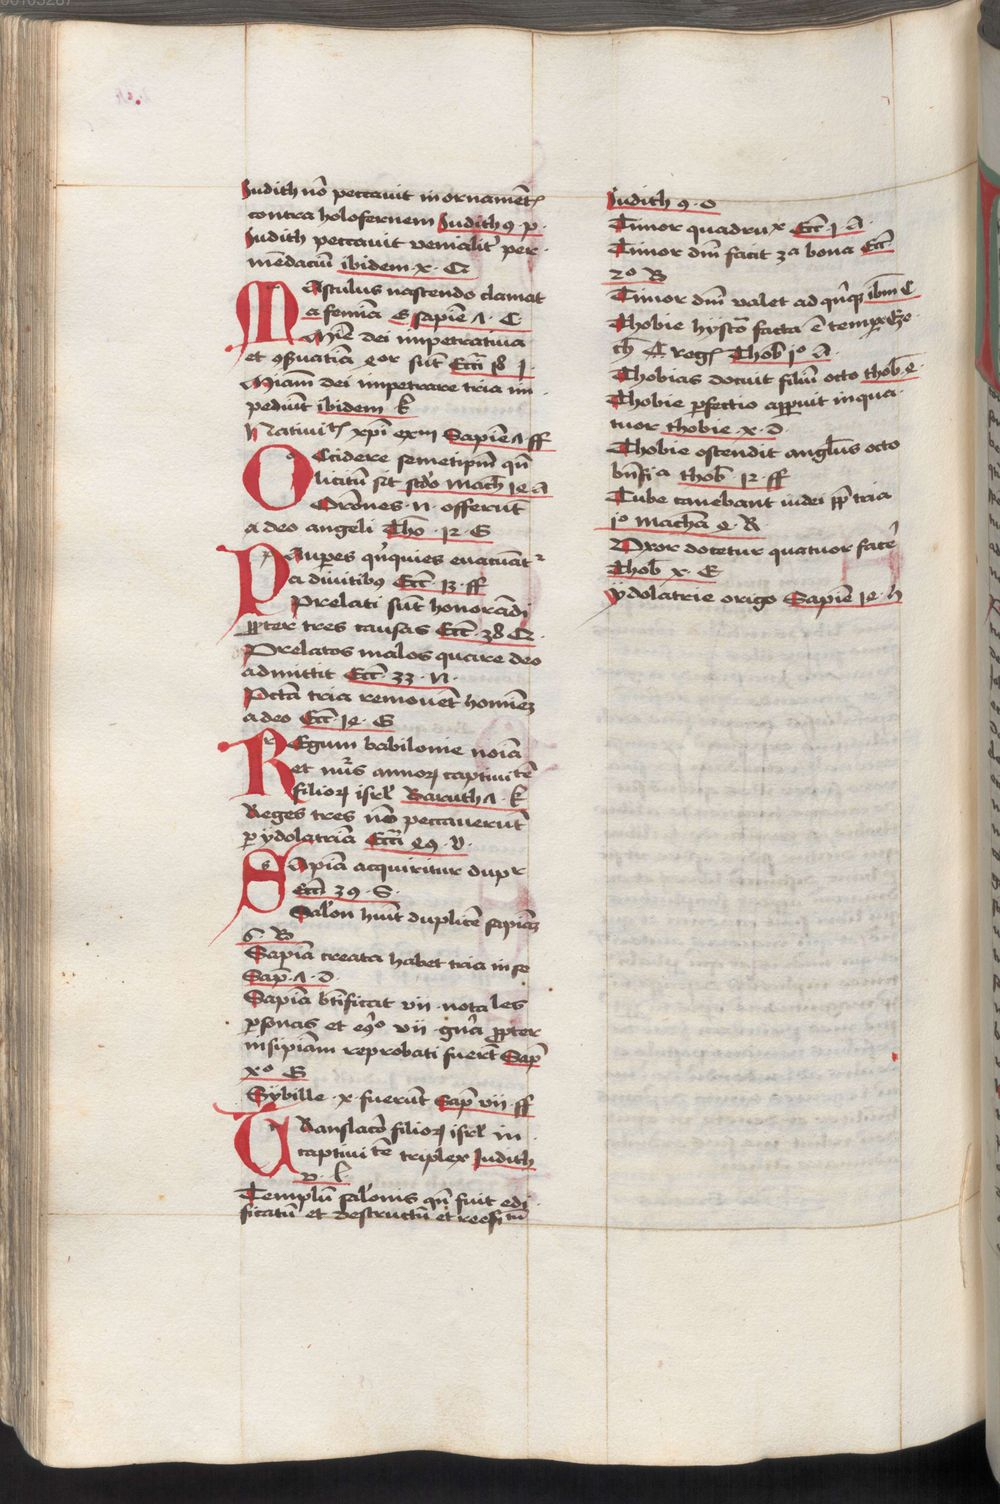 Judith nō peccauit in ornamēt
contra holofernem Judith 9 · p ·
Judith peccauit venialit' per
mēdaciū ibidem · x · Cz
MAsculus nascendo clamat
a femīa E sapiēe 1 · C
Mīe dei impetratiua
et ꝯseruatiua eor sūt Ecci 18 I ·
Miam dei impetrare tria im
pediūt ibidem k
Natiuitʼ xpi exm Sapiēe 1 ff
OCcidere semetipm qn
licitū sit scdo mach 14 a
Orōnes · n · offerunt
a deo angeli Tho · 12 · G
PAuperes qnquies euacuāt
a diuitibꝰ Ecci 13 · ff
Prelati sūt honorādi
ꝓpter tres causas Ecci 38 Cz ·
Prelatos malos quare deo
admittit Ecci 33 · N ·
Pctā tria remouēt homiēz
a deo Ecci 14 · G
REgum babilonie noīa
et nūrs annorꝝ captiuitē
filiorꝝ isrl Baruch 1 · k
Reges tres nō peccauerūt
ꝑ ydolatriā Ecci 49 · v ·
SApīa acquiritur dupr
Ecci 39 · S ·
Salōn huit duplicē sapiaʒ
6 · B
Sapīa creata habet tria in se
Sap · 1 · D
Sapīa btīficat vii · notales
ꝑsonas et eꝯo vii · gnā ꝓpter
insipīam reprobati fuerūt Sap
x° G
Sybille · x · fuerūt Sap vii · ff
TRanslacō filiorꝝ isrl in
captiuitē triplex Judith
v · l
Templū salōnis qn fuit edi
ficatū et destructū et reefitū
Judith 9 · D
Timor quadrux Ecci · 1 · a ·
Timor dm facit 3a bona Ecci
2° B
Timor dm valet ad qnqꝫ ibm C
Thobie hystoa facta ē tempe
ch regꝭ Thob 1° a ·
Thobias docuit filiū octo thob 4
Thobie ꝑfectio apparuit in qua
tuor thobie · x · D ·
Thobie ostendit anglus octo
bnficia thob 12 · ff
Tube canebant iudei ꝓp tria
1° macha 4 · R
Vxor docetur quatuor facē
Thob x · E
ydolatrie origo Sapiēe 14 · h